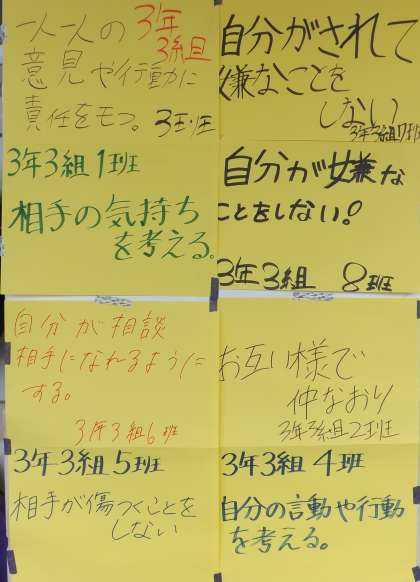 一人一人の
意見や行動に
責任をモつ。
3年
3組
3班
自分がされて
嫌なことを
しない
3年3組7班
3年3組1班
相手の気持ち
を考える。
自分が嫌な
ことをしない!
3年3組 8班
自分が相談
相手になれるように
する。
3年3組6班
お互い様で
仲なおり
3年3組2班
3年3組5班
相手が傷つくことを
しない
3年3組 4班
自分の言動や行動
を考える。